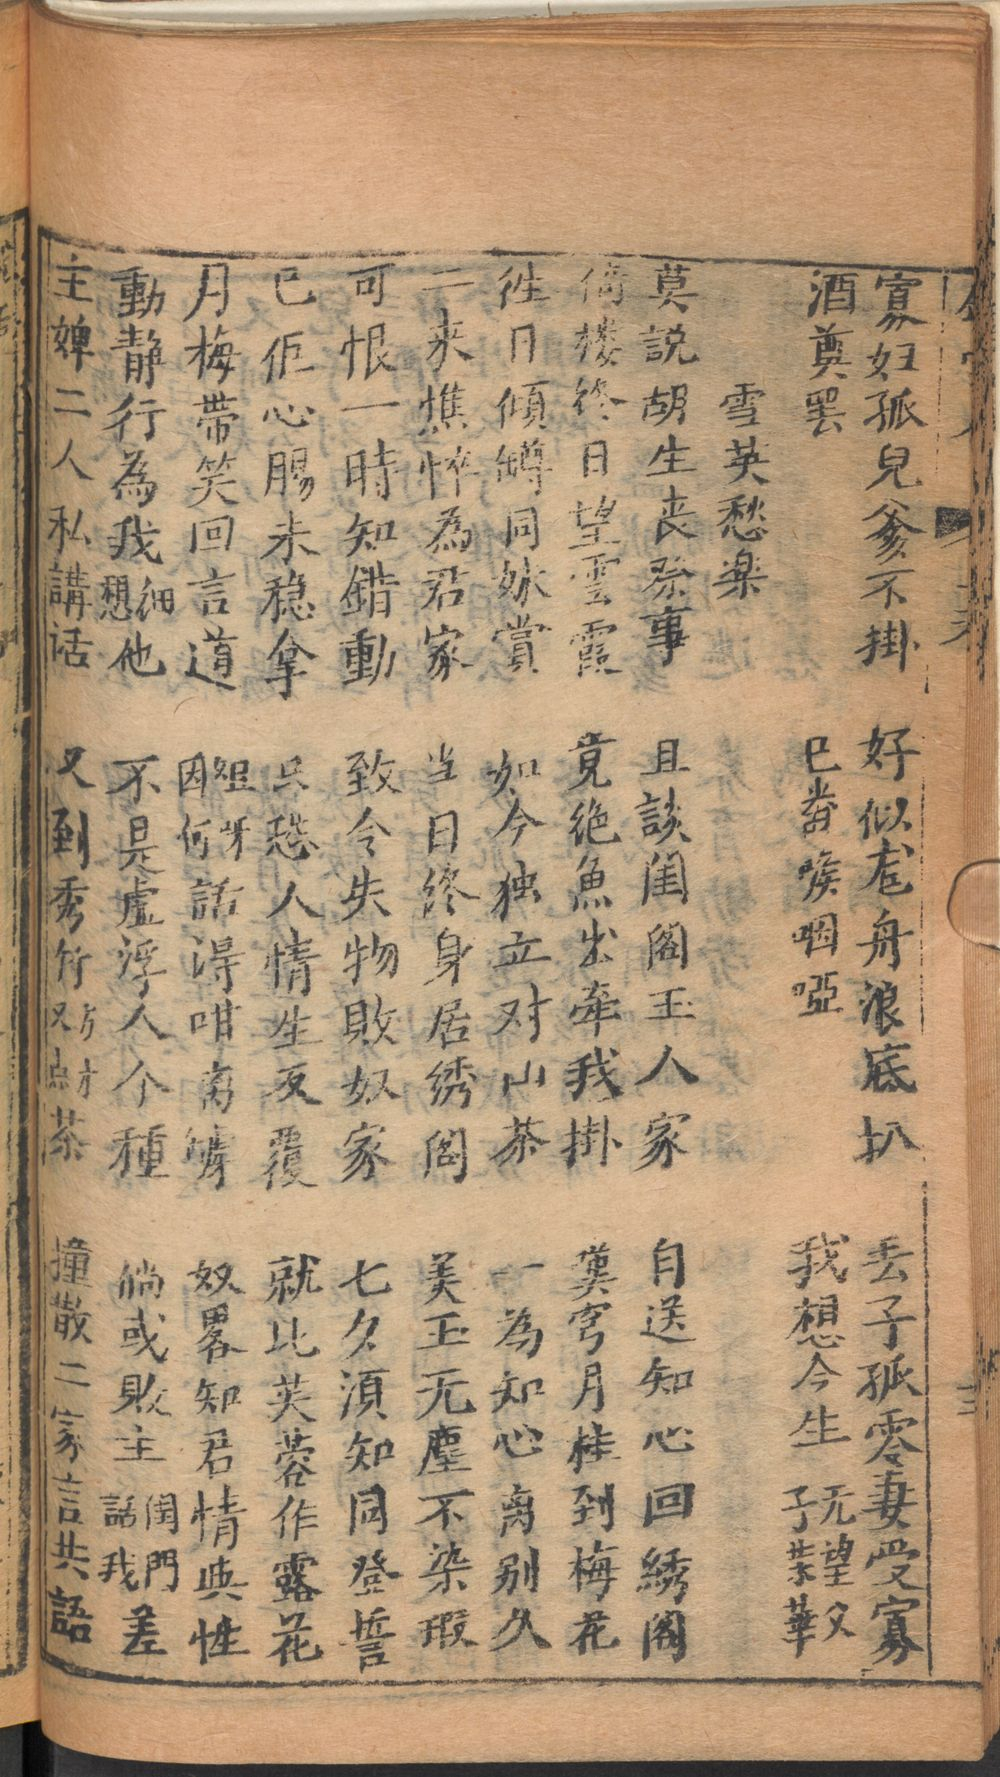 寡妇孤兒爹不掛　好似虎舟浪底扒　丢子孤零妻受寡
酒奠罢　巳畨喉咽啞　我想今生无望父子荣華
雪英愁楽
莫説胡生丧祭事　且談闺阁玉人家　自送知心回綉阁
倚楼终日望雲霞　竟絶魚出牵我掛　奠穹月桂到梅花
徃日傾罇同妹賞　如今独立对山茶　一為知心离别久
二来憔悴為君家　当日终身居綉阁　美玉无塵不染瑕
可恨一時知錯動　致令失物敗奴家　七夕須知同登誓
已佢心腸未稳拿　只恐人情生反覆　就比芙蓉作露花
月梅帶笑回言道　姐呀因何話得咁离罅　奴畧知君情與性
動静行為我細想他　不是虚浮人个種　倘或敗主閨門話我差
主婢二人私講话　又到秀竹又点茶　撞散二家言共語